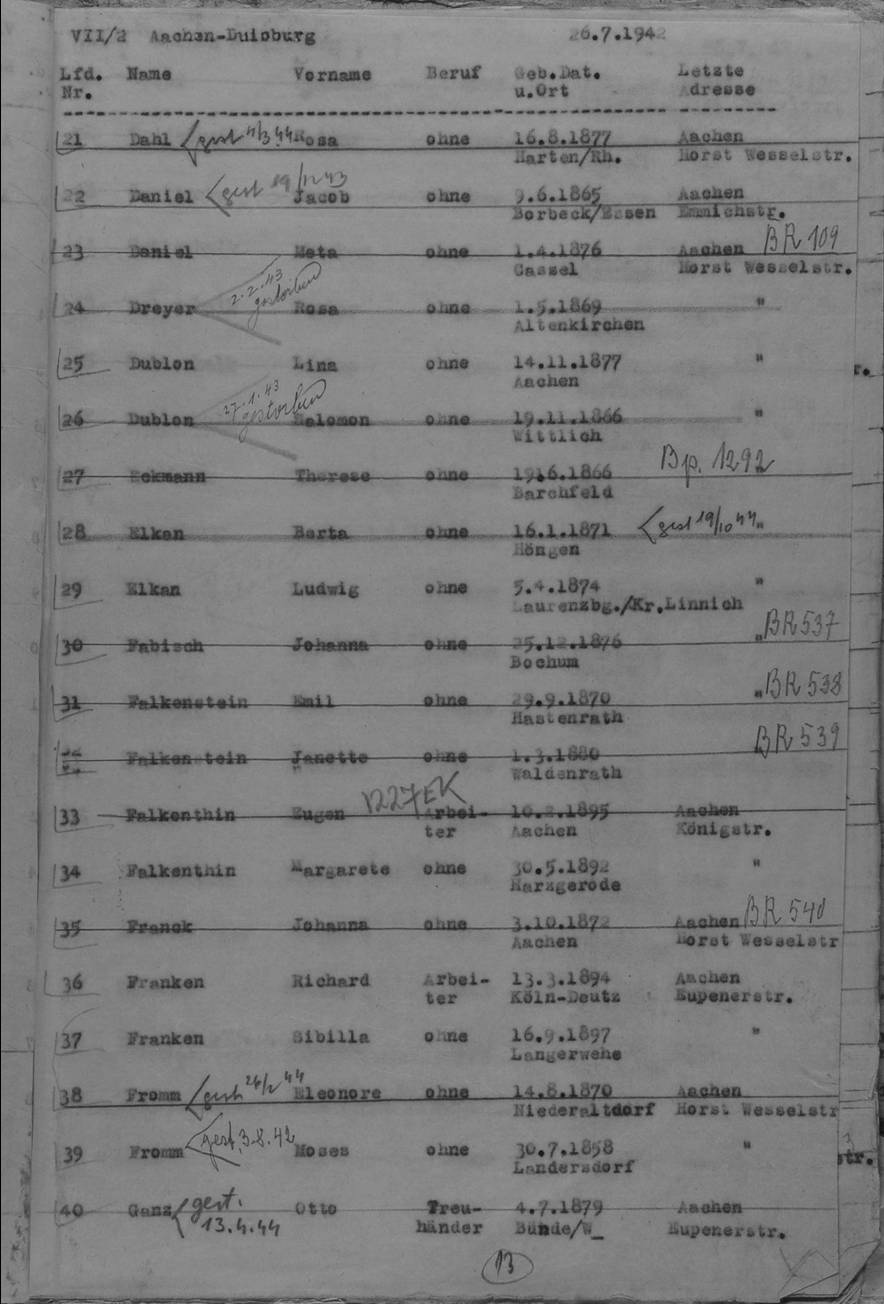 VII/2 Aachen-Duisburg 26.7.1942
Lfd. Name Vorname Beruf Geb.Dat. Letzte
Nr. u.Ort Adresse
21 Dahl gest 11/3 44 Rosa ohne 16.8.1877 Aachen
Harten/Rh. Horst Wesselstr.
22 Daniel gest 19/12 43 Jacob ohne 9.6.1865 Aachen
Borbeck/Essen Emmichstr.
23 Daniel Meta ohne 1.4.1876 Aachen BR 109
Cassel Horst Wesselstr.
24 Dreyer 2.2.43 gestorben Rosa ohne 1.5.1869 "
Altenkirchen
25 Dublon Lina ohne 14.11.1877 "
Aachen
26 Dublon 27.1.43 gestorben Salomon ohne 19.11.1866 "
Wittlich
27 Eckmann Therese ohne 19.6.1866 Bp. 1292
Barchfeld
28 Elkan Berta ohne 16.1.1871 gest 19/10 44 "
Höngen
29 Elkan Ludwig ohne 5.4.1874 "
Laurenzbg./Kr.Linnich
30 Fabisch Johanna ohne 25.12.1876 " BR 537
Bochum
31 Falkenstein Emil ohne 29.9.1870 " BR 538
Hastenrath
Falkenstein Janette ohne 1.3.1880 BR 539
Waldenrath
33 Falkenthin Eugen 1227 EK Arbei- 10.2.1895 Aachen
ter Aachen Königstr.
34 Falkenthin Margarete ohne 30.5.1892 "
Harzgerode
35 Franck Johanna ohne 3.10.1872 Aachen BR 540
Aachen Horst Wesselstr
36 Franken Richard Arbei- 13.3.1894 Aachen
ter Köln-Deutz Eupenerstr.
37 Franken Sibilla ohne 16.9.1897 "
Langerwehe
38 Fromm gest 24/2 44 Eleonore ohne 14.8.1870 Aachen
Niederaltdorf Horst Wesselstr
39 Fromm gest. 3.8.42 Moses ohne 30.7.1858 "
Landersdorf
40 Ganz gest. Otto Treu- 4.7.1879 Aachen
13.4.44 händer Bünde/W_ Eupenerstr.
13